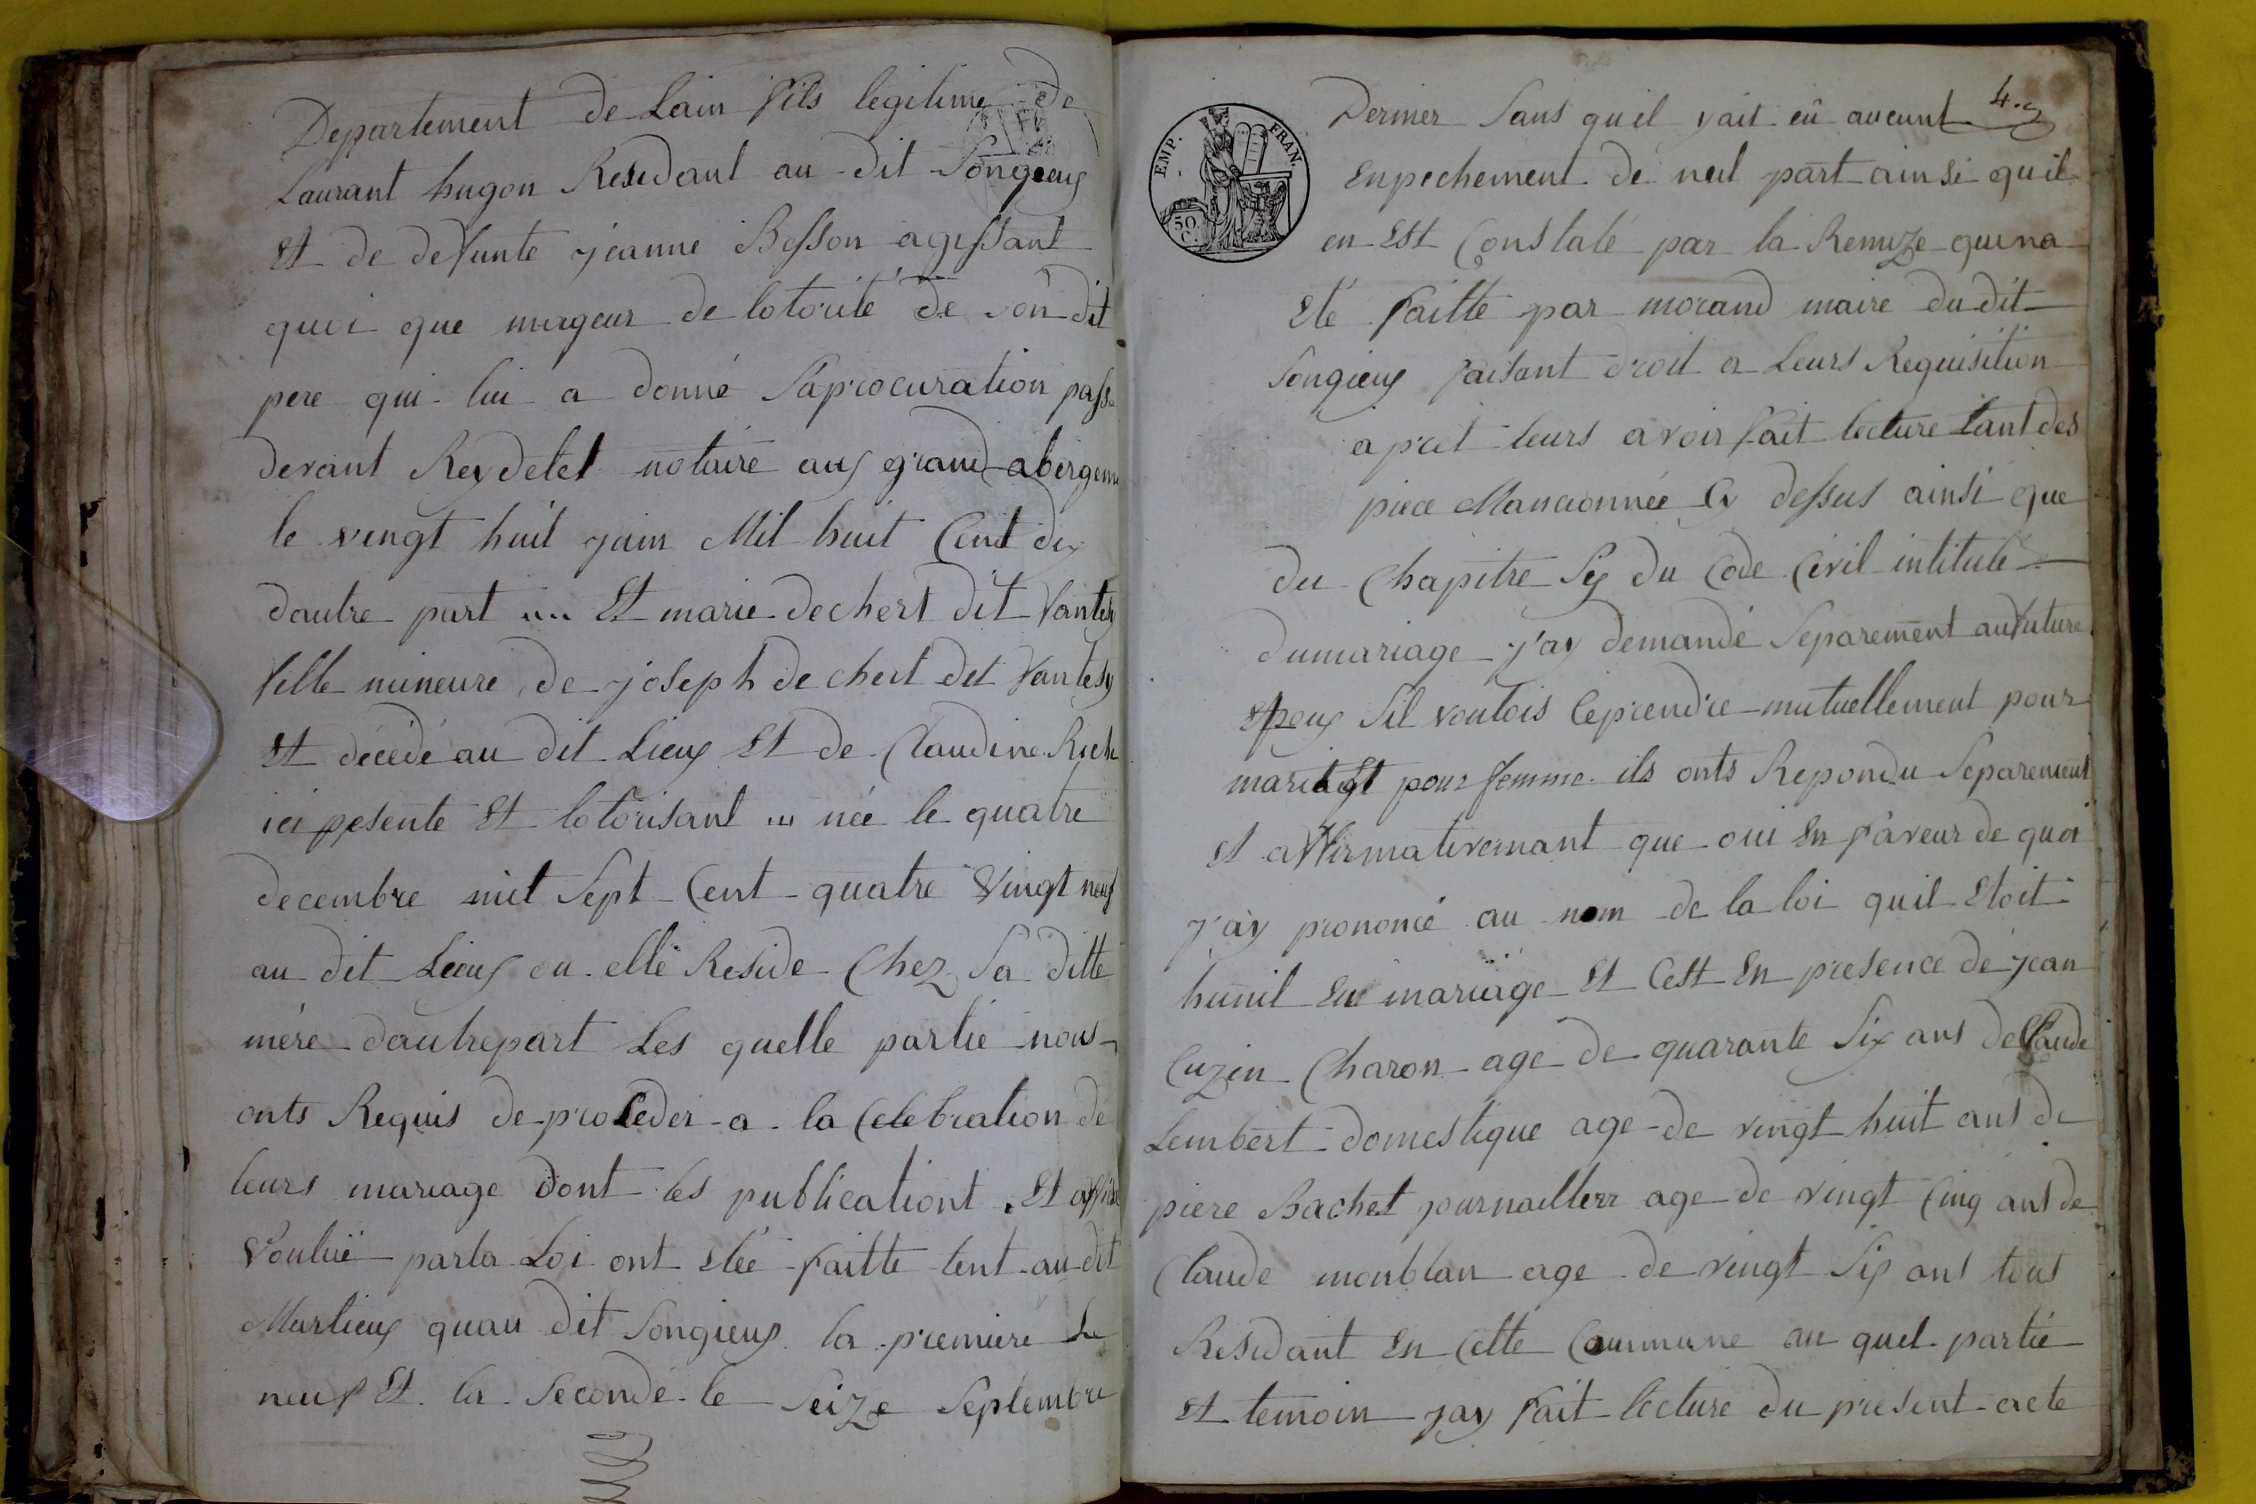 Departement de Lain fils legitime de
Laurant hugon Residant au dit Songieux
Et de defunte jeanne Besson agissant
quoi que mageur de lotorité de son dit
pere qui lui a donné Saprocuration passé
devant Reydelet notaire aux grand abergem
le vingt huit juin Mil huit Cent dix
dautre part ... Et marie dechert dit
fille mineure de joseph de chert dit
et décédé au dit Lieux Et de Claudine
ici presente Et lotorisant ... née le quatre
decembre mil Sept Cent quatre Vingt neuf
au dit Lieux ou elle Reside Chez Sa ditte
mère dautrepart Les quelle partie nous
onts Requis de proceder a la Celebration de
leurs mariage dont les publicationt Et affiche
Voulüe parla Loi ont étée faitte tent au dit
Marlieux quau dit Songieux la premiere Le
neuf Et la Seconde le Seize Septembre
4.
EMP. FRAN.
50 C.
Dernier Sans quil yait eû aucunt
Enpechement de nul part ainsi quil
en Est Constaté par la Remize quina
Eté faitte par morand maire du dit
Songieux faisant droit a Leurs Requisition
apret leurs avoir fait lecture tant des
piece Mancionnée Cy dessus ainsi que
du Chapitre Six du Code Civil intitulé
dumariage j'ay demandé Separement aufuture
Epoux Sil voulois Ceprendre mutuellement pour
mari Et pour femme ils onts Repondu Separement
et affirmativemant que oui En faveur de quoi
j'ay prononcé au nom de la loi quil Etoit
hunil En mariage Et Cest En presence de jean
Cuzin Charon age de quarante Six ans de Claude
Lembert domestique age de vingt huit ans de
piere Bachet journaillerr age de vingt Cinq ans de
Claude monblan age de vingt Six ans tous
Residant En Cette Commune au quel partie
Et temoin jay fait lecture du present acte